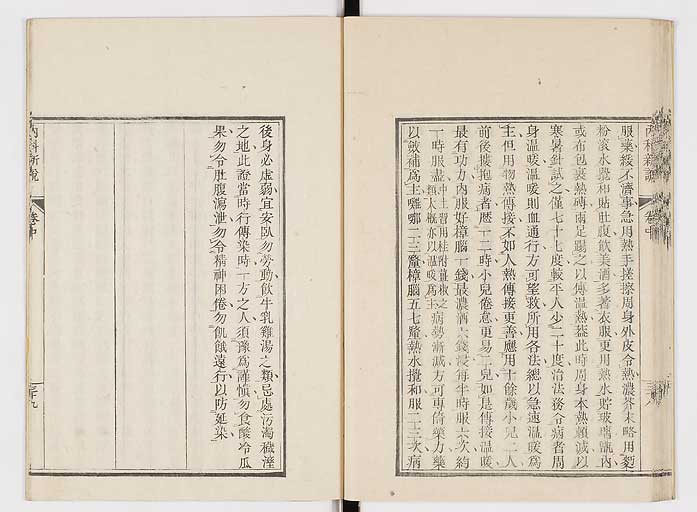 服藥緩不濟事急用熱手搓擦周身外皮令熱濃芥末略用麪
粉滾水攪和貼肚腹飲美酒多著衣服更用熱水貯玻璃瓶內
或布包裹熱磚兩足踢之以傳溫熱蓋此時周身本熱頼減以
寒暑針試之僅七十七度較平人少二十度治法務令病者周
身溫暖溫暖則血通行方可望救所用各法總以急速溫暖爲
主但用物熱傳接不如人熱傳接更善應用十餘歲小兒二人
前後摟抱病者歷一二時小兒倦怠更易二兒如是傳接溫暖
最有功力內服好樟腦一錢最濃酒六錢浸每半時服六次約
一時服盡中土習用桂附薑椒之類大概亦以溫暖爲主病勢漸減方可專倚藥力藥
以斂補爲主囉囉二三釐樟腦五七釐熱水攪和服二三次病
內科新說
卷中
三十八
後身必虛弱宜安臥勿勞動飲牛乳雞湯之類忌處污濁穢溼
之地此證當時行傳染時一方之人須豫爲謹慎勿食酸冷瓜
果勿令肚腹瀉泄勿令精神困倦勿飢餓遠行以防延染
內科新說
卷中
三十九